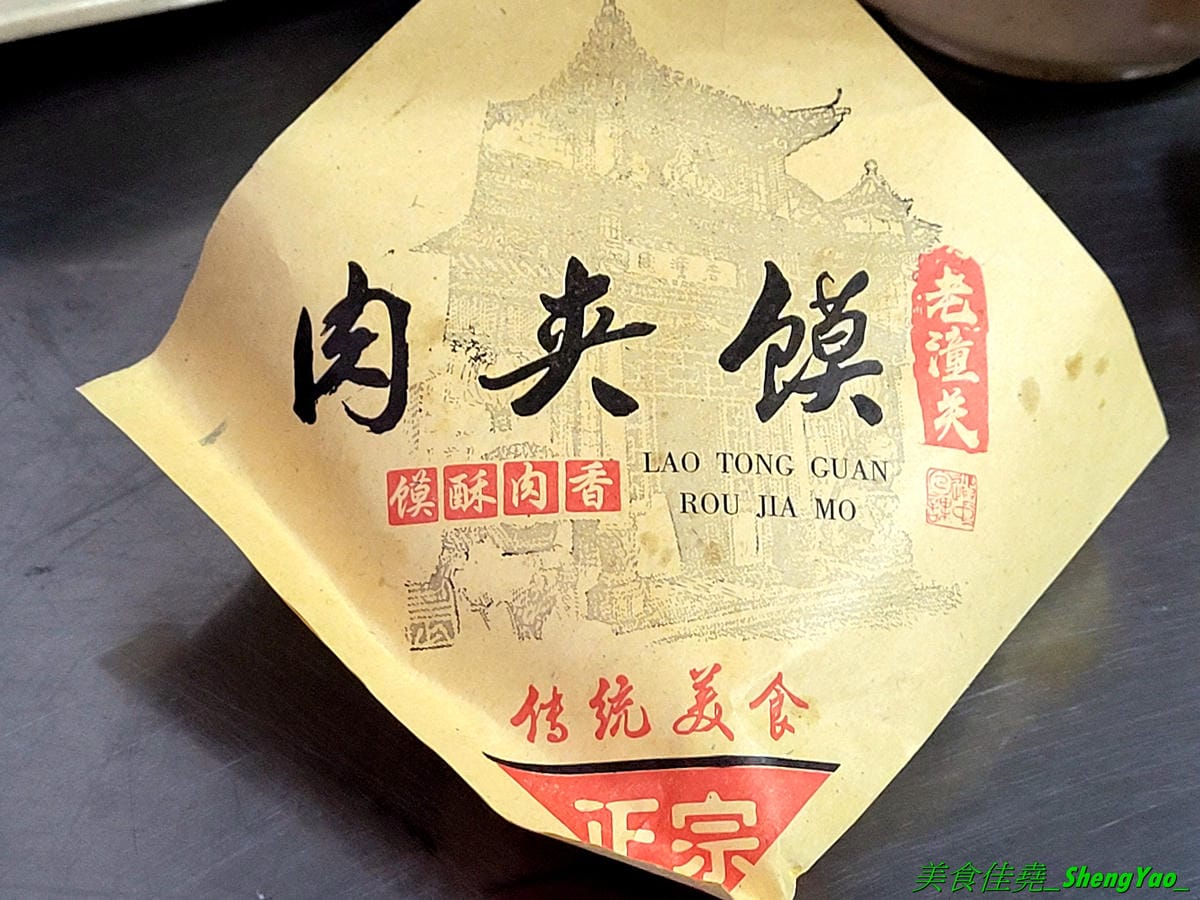 肉夹馍
老潼关
馍酥肉香
LAO TONG GUAN
ROU JIA MO
传统美食
正宗
美食佳堯_ShengYao_